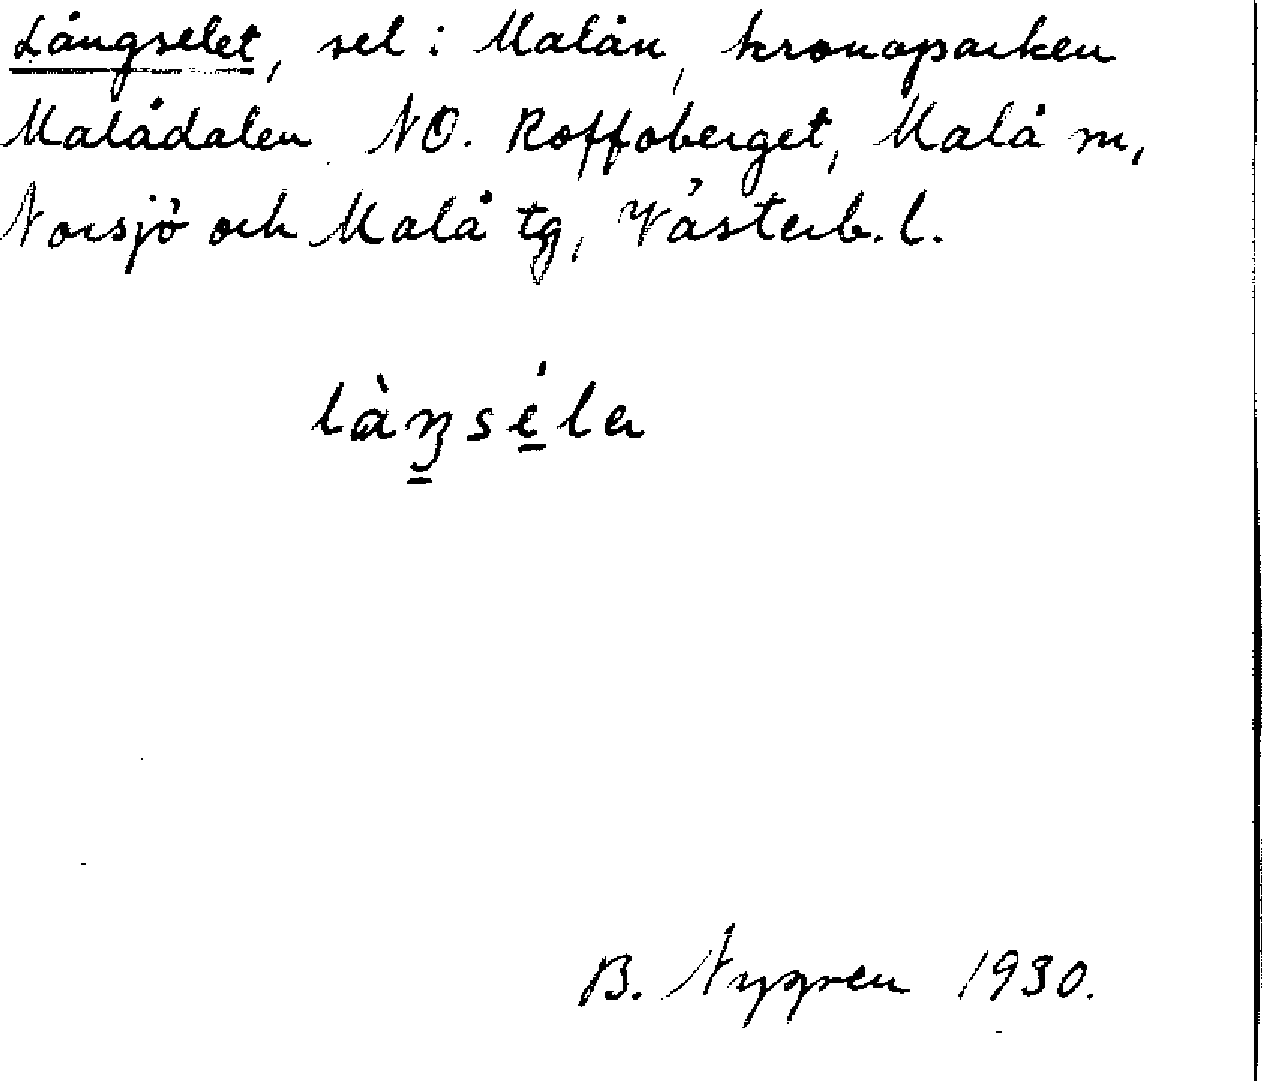 Långselet, sel i Malån, kronoparken
Malådalen NO. Roffoberget, Malå sn,
Norsjö och Malå tg, Västerb. l.
B. Nygren 1930.